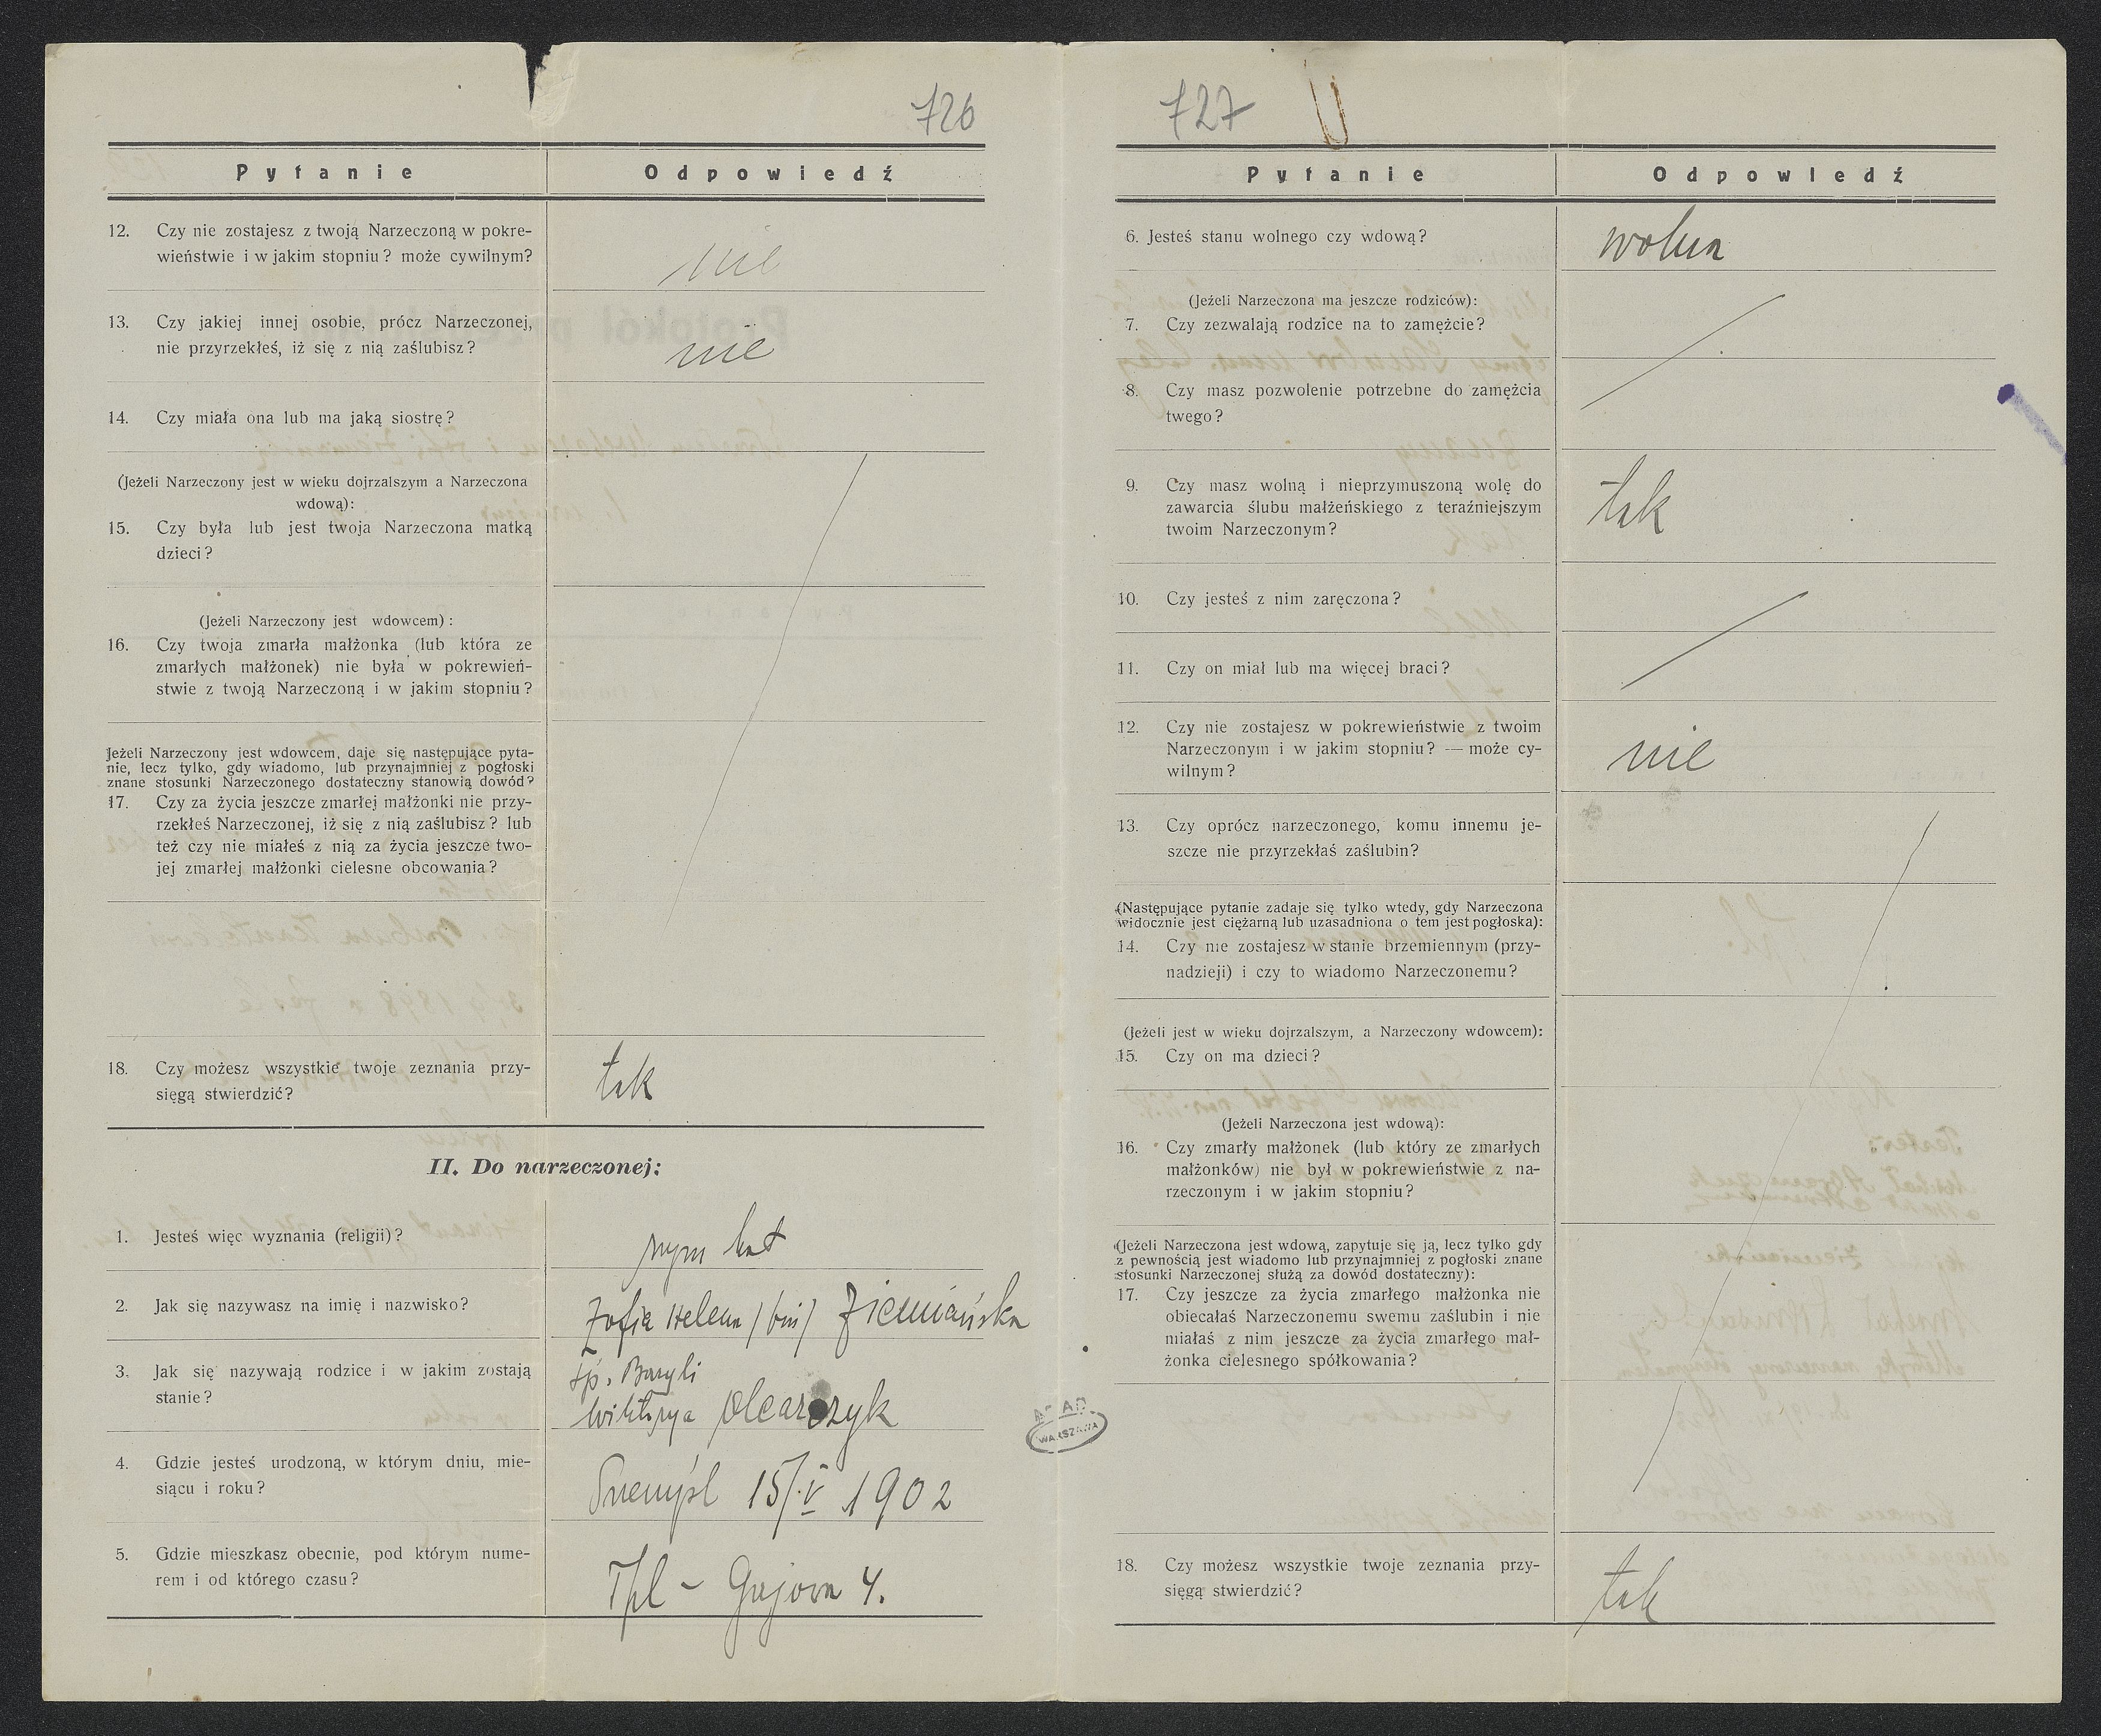 726
Pytanie Odpowiedź
12. Czy nie zostajesz z twoją Narzeczoną w pokre-
wieństwie i w jakim stopniu? może cywilnym?
nie
13. Czy jakiej innej osobie, prócz Narzeczonej,
nie przyrzekłeś, iż się z nią zaślubisz?
nie
14. Czy miała ona lub ma jaką siostrę?
(Jeżeli Narzeczony jest w wieku dojrzalszym a Narzeczona
wdową):
15. Czy była lub jest twoja Narzeczona matką
dzieci?
(Jeżeli Narzeczony jest wdowcem):
16. Czy twoja zmarła małżonka (lub która ze
zmarłych małżonek) nie była w pokrewień-
stwie z twoją Narzeczoną i w jakim stopniu?
Jeżeli Narzeczony jest wdowcem, daje się następujące pyta-
nie, lecz tylko, gdy wiadomo, lub przynajmniej z pogłoski
znane stosunki Narzeczonego dostateczny stanowią dowód?
17. Czy za życia jeszcze zmarłej małżonki nie przy-
rzekłeś Narzeczonej, iż się z nią zaślubisz? lub
też czy nie miałeś z nią za życia jeszcze two-
jej zmarłej małżonki cielesne obcowania?
18. Czy możesz wszystkie twoje zeznania przy-
sięgą stwierdzić?
tak
II. Do narzeczonej:
1. Jesteś więc wyznania (religii)?
rzym kat
2. Jak się nazywasz na imię i nazwisko?
Zofia Helena /bin/ Ziemiańska
3. Jak się nazywają rodzice i w jakim zostają
stanie?
śp. Bazyli
Wiktorya Olearczyk
4. Gdzie jesteś urodzoną, w którym dniu, mie-
siącu i roku?
Przemyśl 15/V 1902
5. Gdzie mieszkasz obecnie, pod którym nume-
rem i od którego czasu?
Tpl - Gajowa 4.
727
Pytanie Odpowiedź
6. Jesteś stanu wolnego czy wdową?
wolna
(Jeżeli Narzeczona ma jeszcze rodziców):
7. Czy zezwalają rodzice na to zamężcie?
8. Czy masz pozwolenie potrzebne do zamężcia
twego?
9. Czy masz wolną i nieprzymuszoną wolę do
zawarcia ślubu małżeńskiego z teraźniejszym
twoim Narzeczonym?
tak
10. Czy jesteś z nim zaręczona?
11. Czy on miał lub ma więcej braci?
12. Czy nie zostajesz w pokrewieństwie z twoim
Narzeczonym i w jakim stopniu? — może cy-
wilnym?
nie
13. Czy oprócz narzeczonego, komu innemu je-
szcze nie przyrzekłaś zaślubin?
(Następujące pytanie zadaje się tylko wtedy, gdy Narzeczona
widocznie jest ciężarną lub uzasadniona o tem jest pogłoska):
14. Czy nie zostajesz w stanie brzemiennym (przy-
nadzieji) i czy to wiadomo Narzeczonemu?
(Jeżeli jest w wieku dojrzalszym, a Narzeczony wdowcem):
15. Czy on ma dzieci?
(Jeżeli Narzeczona jest wdową):
16. Czy zmarły małżonek (lub który ze zmarłych
małżonków) nie był w pokrewieństwie z na-
rzeczonym i w jakim stopniu?
(Jeżeli Narzeczona jest wdową, zapytuje się ją, lecz tylko gdy
z pewnością jest wiadomo lub przynajmniej z pogłoski znane
stosunki Narzeczonej służą za dowód dostateczny):
17. Czy jeszcze za życia zmarłego małżonka nie
obiecałaś Narzeczonemu swemu zaślubin i nie
miałaś z nim jeszcze za życia zmarłego mał-
żonka cielesnego spółkowania?
18. Czy możesz wszystkie twoje zeznania przy-
sięgą stwierdzić?
tak
AGAD
WARSZAWA